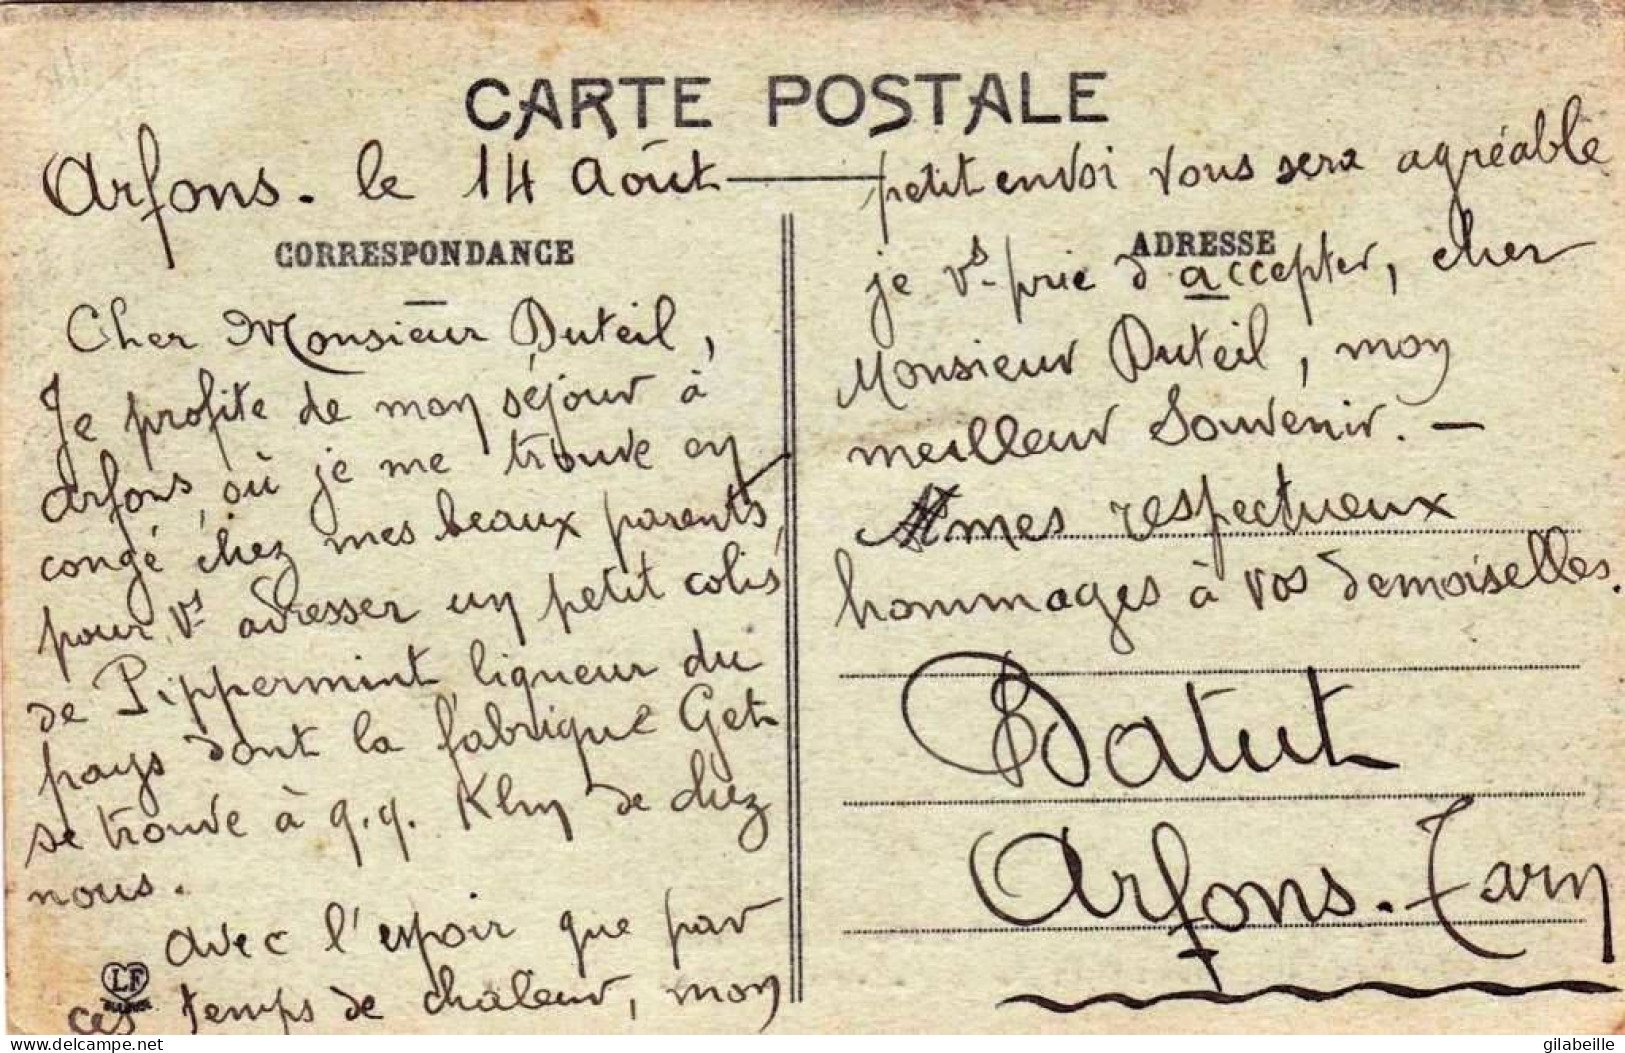 CARTE POSTALE
Arfons. le 14 Août
CORRESPONDANCE
Cher Monsieur Duteil,
Je profite de mon séjour à
Arfons, où je me trouve en
congé chez mes beaux parents,
pour vs adresser un petit colis
de Pippermint, liqueur du
pays dont la fabrique Get
se trouve à q.q. Klm de chez
nous.
Avec l'espoir que par
ces temps de chaleur, mon
petit envoi vous sera agréable
ADRESSE
je vs prie d'accepter, cher
Monsieur Duteil, mon
meilleur souvenir. —
mes respectueux
hommages à vos demoiselles.
Batut
Arfons. Tarn
LF
delcampe.net
gilabeille